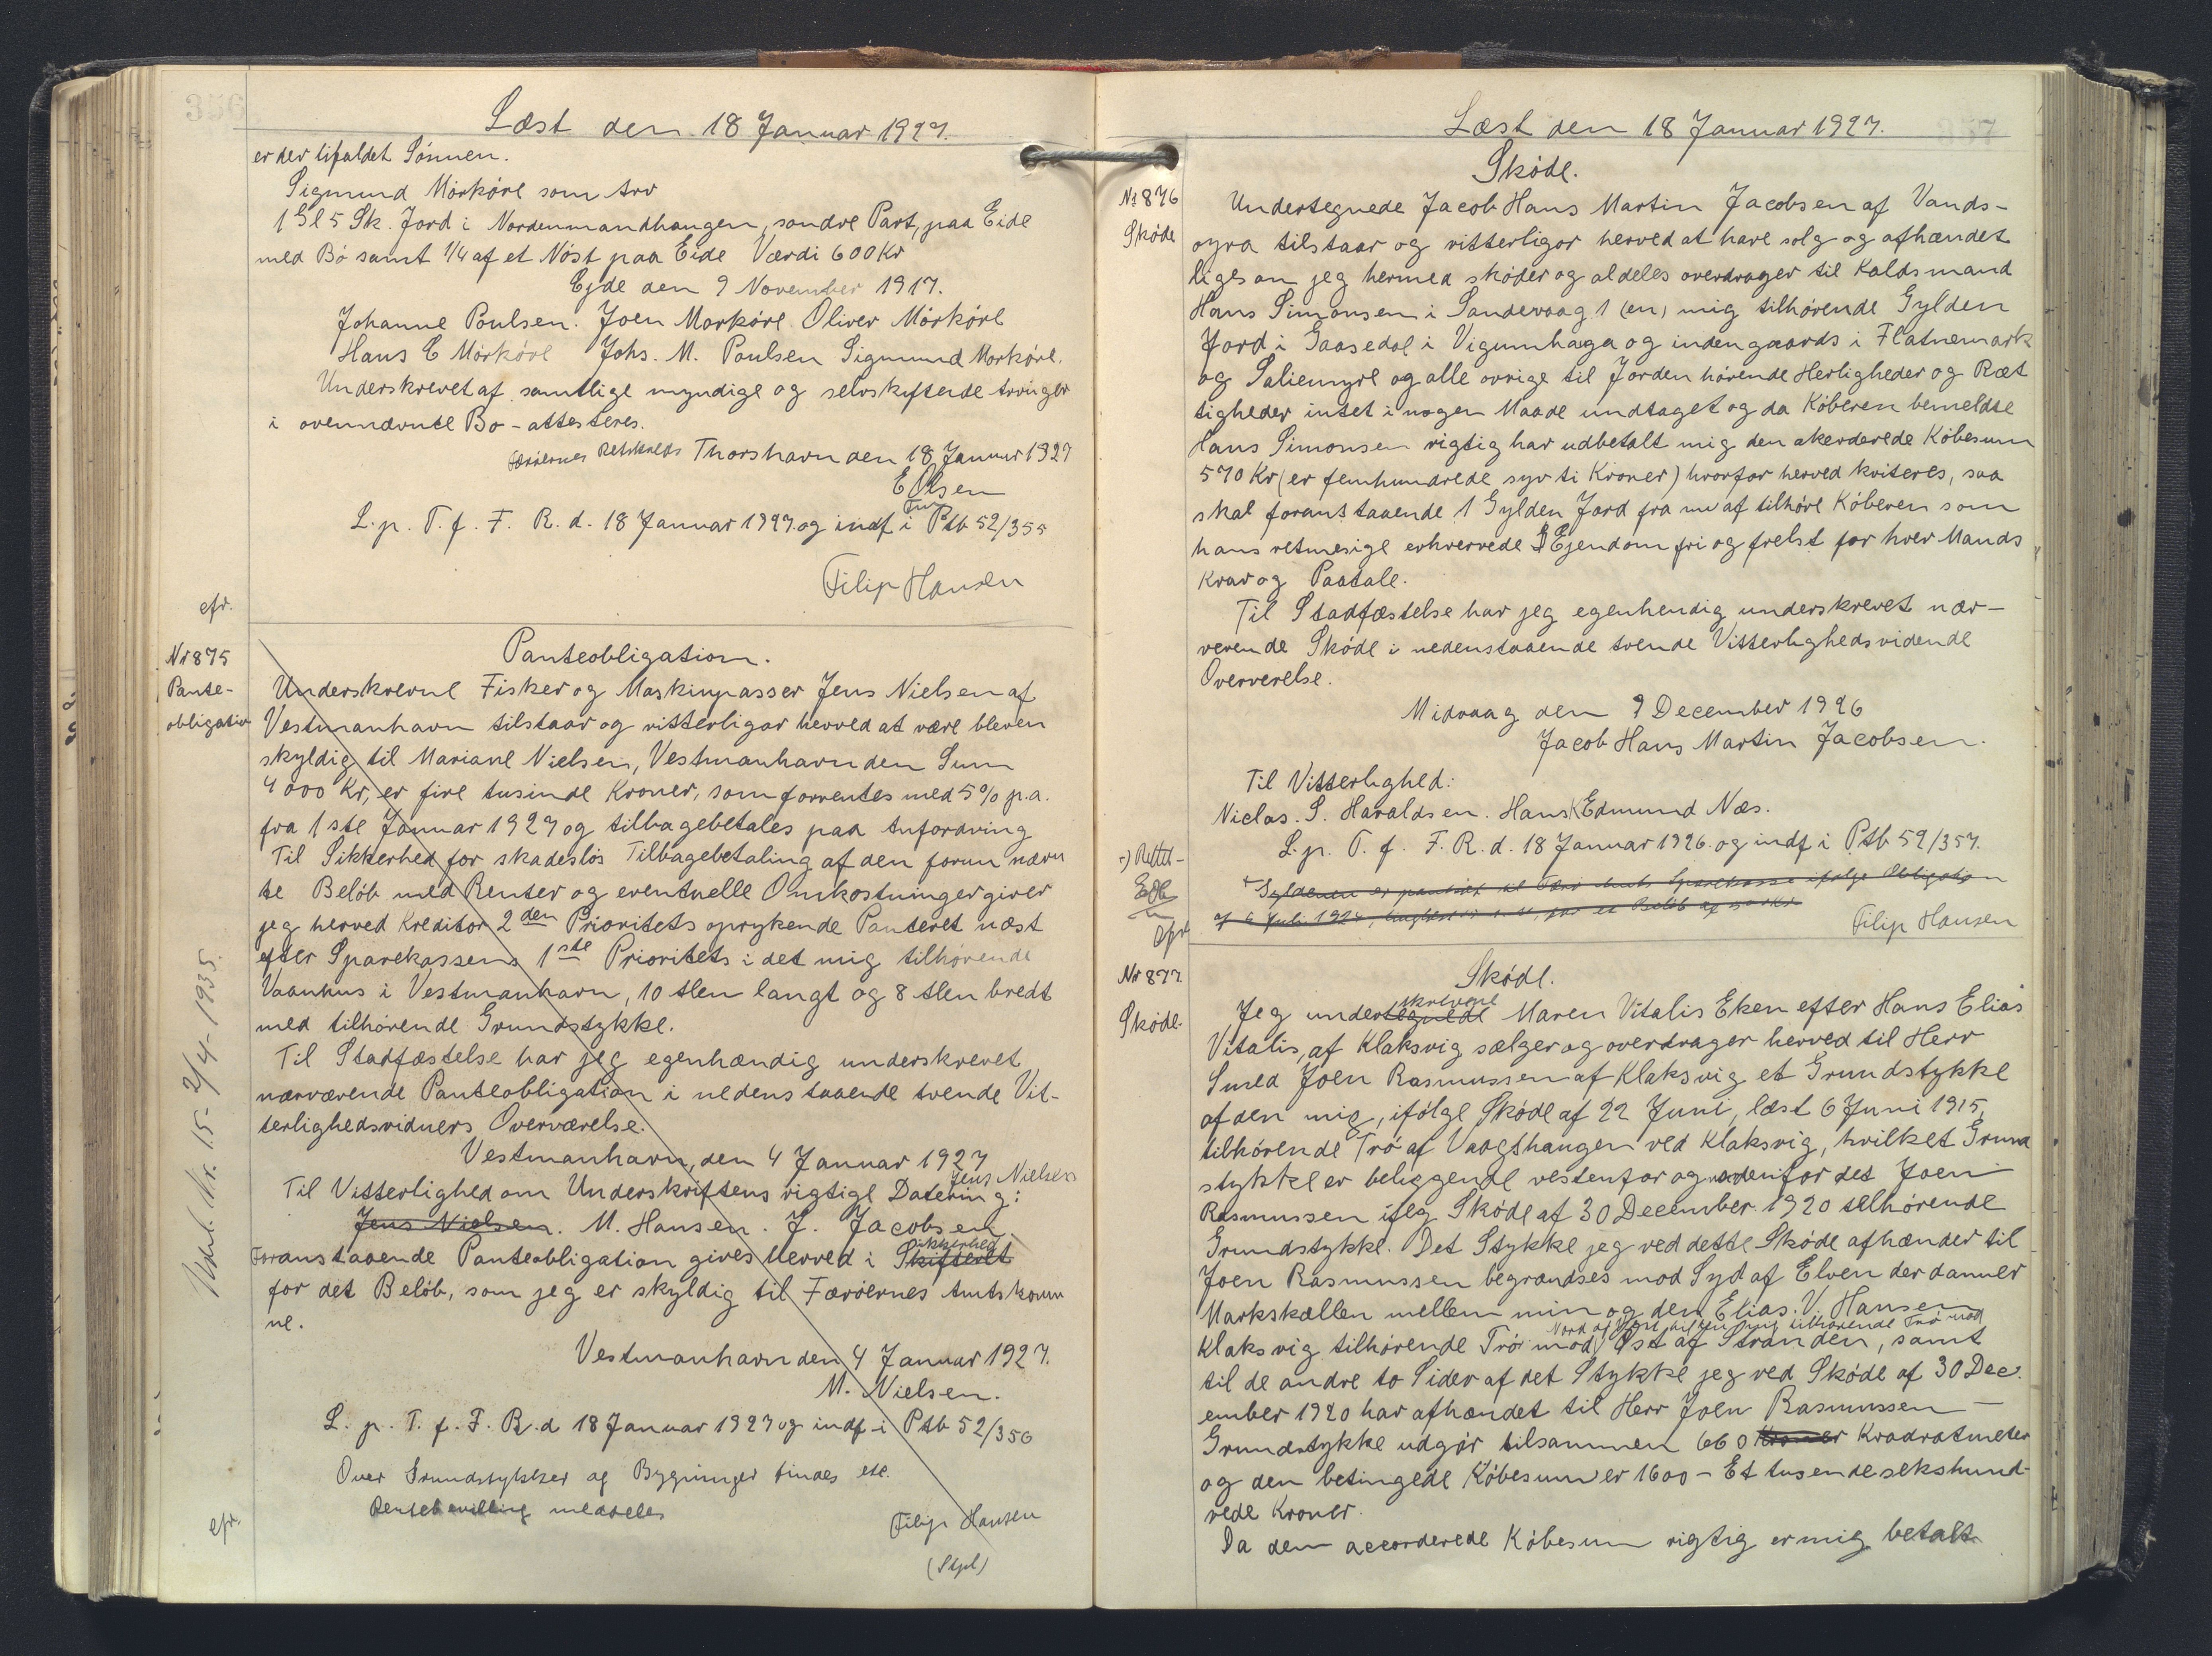 356
Læst den 18 Januar 1927.
er der tifaldet Sönnen.
Sigmund Mörköre som Arv
1 Gl 5 Sk. Jord i Nordenmandhaugen, söndre Part, paa Eide
med Bö samt 1/4 af et Nöst paa Eide Værdi 600 Kr
Ejde den 9 November 1917.
Johanne Poulsen. Joen Morköre. Oliver Mörköre
Hans E Mörköre Johs. M. Poulsen Sigmund Morköre.
Underskrevet af samtlige myndige og selvskiftende Arvinger
i ovennævnte Bo - attesteres.
Færöernes Retskreds Thorshavn den 18 Januar 1927
E Olsen
Fm
L. p. T. f. F. R. d. 18 Januar 1927. og indf i Ptb 52/355
Filip Hansen
cfr.
Nr 875
Pante-
obligation
Panteobligation.
Underskrevne Fisker og Maskinpasser Jens Nielsen af
Vestmanhavn tilstaar og vitterligør herved at være bleven
skyldig til Mariane Nielsen, Vestmanhavn den Sum
4000 Kr, er fire tusinde Kroner, som forrentes med 5% p.a.
fra 1ste Januar 1927 og tilbagebetales paa Anfordring
Til Sikkerhed for skadeslös Tilbagebetaling af den forun nævn
te Belöb med Renter og eventuelle Omkostninger giver
jeg herved Kreditor 2den Prioritets oprykende Panteret næst
efter Sparekassens 1ste Prioritets i det mig tilhørende
Vaanhus i Vestmanhavn, 10 Alen langt og 8 Alen bredt
med tilhörende Grundstykke.
Til Stadfæstelse har jeg egenhændig underskrevet
nærværende Panteobligation i nedenstaaende tvende Vit-
terlighedsvidners Overværelse.
Vestmanhavn, den 4 Januar 1927
Jens Nielsen
Til Vitterlighed om Underskriftens rigtige Datering:
Jens Nielsen. M. Hansen. J. Jacobsen
Sikkerhed
Foranstaaende Panteobligation gives herved i Skifteret
for det Belöb, som jeg er skyldig til Færöernes Amtskomm
ne.
Vestmanhavn den 4 Januar 1927.
M. Nielsen.
L. p. T. f. F. R. d 18 Januar 1927 og indf i Ptb 52/356
Over Grundstykker og Bygninger findes etc.
meddeles
Filip Hansen
(Stpl)
Nr. 15 - 2/4 - 1935.
cfr.
357
Læst den 18 Januar 1927.
Sköde.
Nr 876
Sköde
Undertegnede Jacob Hans Martin Jacobsen af Vands-
oyra tilstaar og vitterligør herved at have solg og afhændet
ligeson jeg hermed sköder og aldeles overdrager til Kaldsmand
Hans Simonsen i Sandevaag 1 (en) mig tilhørende Gylden
Jord i Gaasedal i Vigumhaga og indengaards i Flatnemark
og Saliemyre og alle ovrige til Jorden hörende Herligheder og Ret
tigheder intet i nogen Maade undtaget og da Köberen bemeldte
Hans Simonsen rigtig har udbetalt mig den akorderede Köbesum
570 Kr (er femhundrede syv ti Kroner) hvorfor herved kviteres, saa
skal foranstaaende 1 Gylden Jord fra nu af tilhöre Köberen som
hans retmesige erhvervede Ejendom fri og frelst for hver Mands
Krav og Paatale.
Til Stadfæstelse har jeg egenhendig underskrevet nær-
verende Sköde i nedenstaaende tvende Vitterlighedsvidende
Oververelse.
Midvaag den 9 December 1926
Jacob Hans Martin Jacobsen.
Til Vitterlighed:
Niclas. S. Haraldsen. Hans K Edmund Næs.
L. p. T. f. F. R. d. 18 Januar 1926. og indf i Ptb 52/357.
+) Rettet -
+ Gyldenen er pantsat til Færö Amts Sparekasse ifølge Obligation
af 6 Juli 1924, for et Belöb af
Filip Hansen
cfr
Nr 877
Sköde.
Sköde.
skrevne
Jeg undertegnede Maren Vitalis Eken efter Hans Elias
Vitalis, af Klaksvig sælger og overdrager herved til Herr
Smed Joen Rasmussen af Klaksvig et Grundstykke
af den mig, ifölge Sköde af 22 Juni, læst 6 Juni 1915,
tilhörende Trö af Vaagshaugen ved Klaksvig, hvilket Grund
stykke er beliggende vestenfor og nordenfor det Joen
Rasmussen iflg Sköde af 30 December 1920 tilhörende
Grundstykke. Det Stykke jeg ved dette Sköde afhænder til
Joen Rasmussen begrændses mod Syd af Elven der danner
Markskællen mellem min og den Elias. V. Hansen
Nord og Vest af den mig tilhörende Trö mod
Klaksvig tilhörende Trö mod Øst af Stranden, samt
til de andre to Sider af det Stykke jeg ved Sköde af 30 Dec.
ember 1920 har afhændet til Herr Joen Rasmussen -
Grundstykke udgör tilsammen 660 Kroner Kvadratmeter
og den betingede Köbesum er 1600 - Et tusende sekshund-
rede Kroner.
Da den accorderede Köbesum rigtig er mig betalt